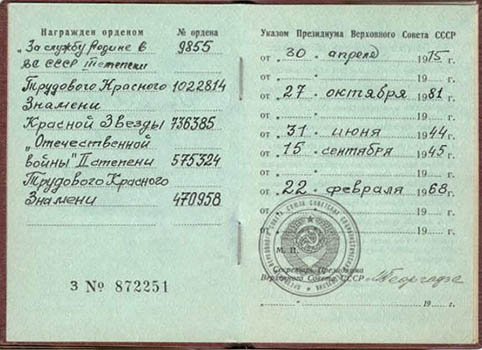 Награжден орденом № ордена
„За службу Родине в 9855
ВС СССР" III степени
Трудового Красного 1022814
Знамени
Красной Звезды 736385
„Отечественной
войны" II степени 575324
Трудового Красного
Знамени 470958
З № 872251
Указом Президиума Верховного Совета СССР
от „30" апреля 1975 г.
от „ " 19 г.
от „27" октября 1981 г.
от „ " 19 г.
от „31" июня 1944 г.
от „15" сентября 1945 г.
от „ " 19 г.
от „22" февраля 1968 г.
от „ " 19 г.
М. П.
Секретарь Президиума
Верховного Совета СССР
„ " 19 г.